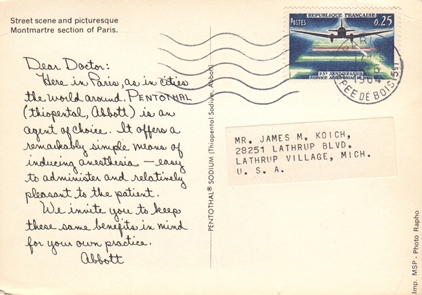 Street scene and picturesque
Montmartre section of Paris.
Dear Doctor:
Here in Paris, as in cities
the world around, PENTOTHAL
(thiopental, Abbott) is an
agent of choice. It offers a
remarkably simple means of
inducing anesthesia — easy
to administer and relatively
pleasant to the patient.
We invite you to keep
these same benefits in mind
for your own practice.
Abbott
PENTOTHAL® SODIUM (Thiopental Sodium, Abbott)
REPUBLIQUE FRANÇAISE
POSTES
0,25
MR. JAMES M. KOICH,
28251 LATHRUP BLVD.
LATHRUP VILLAGE, MICH.
U. S. A.
Imp. MSP - Photo Rapho